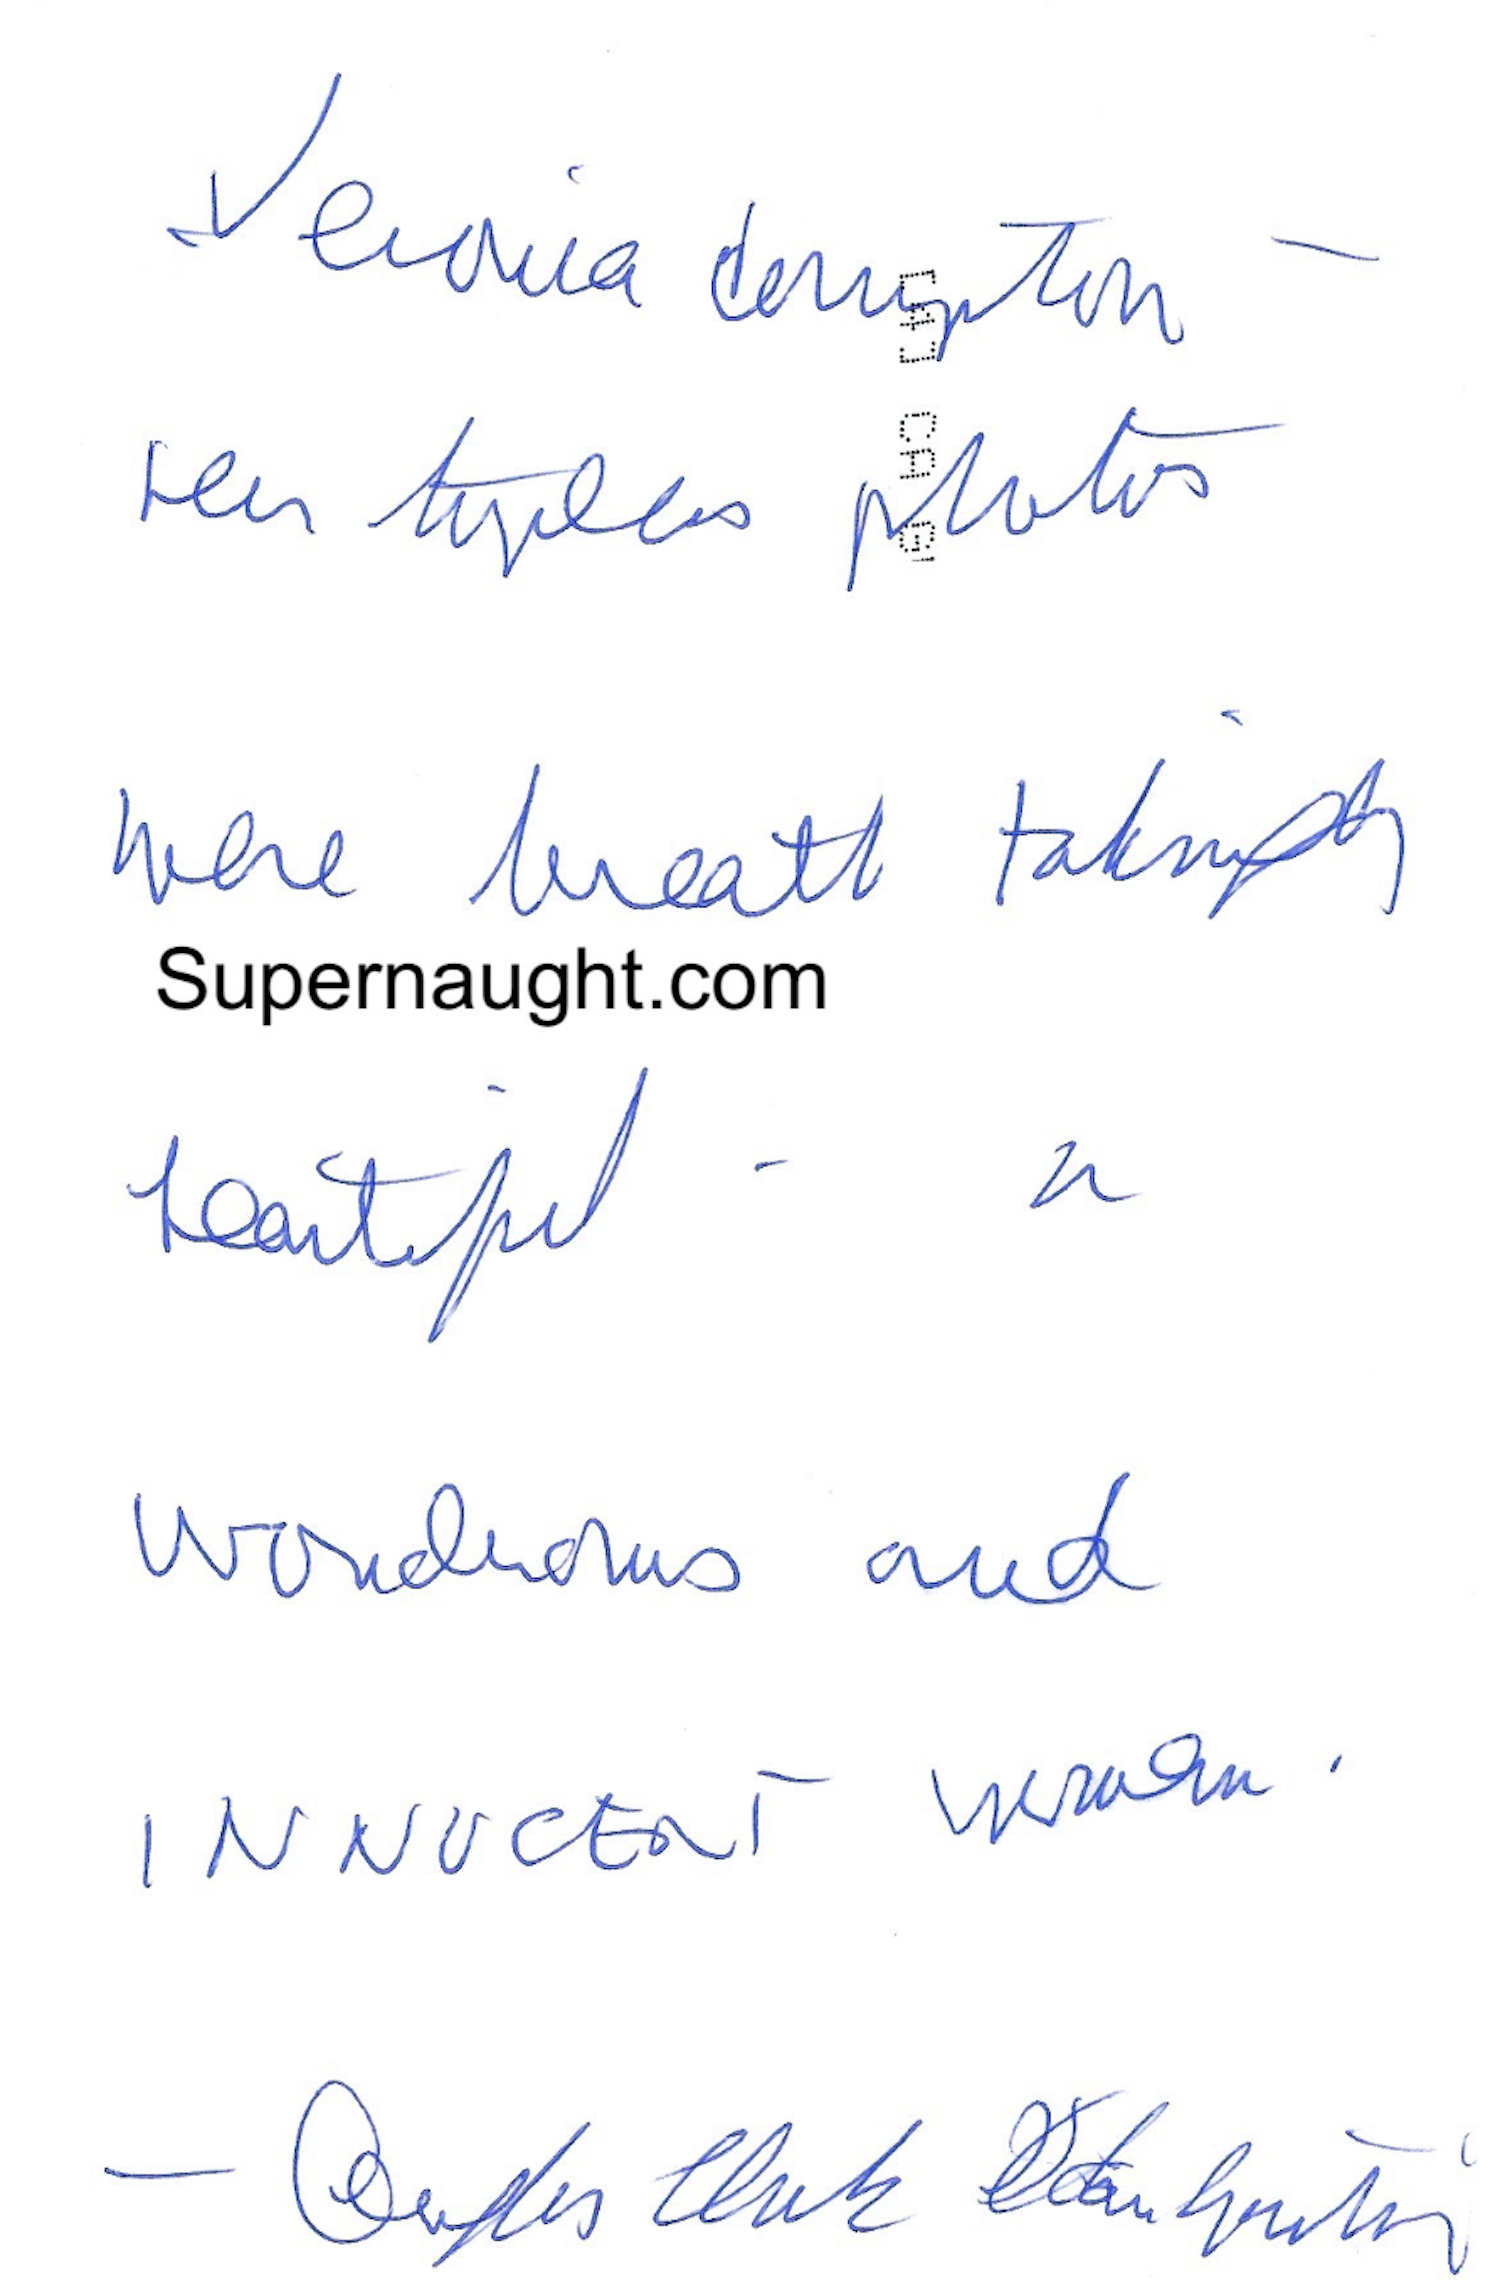 Veronica Compton —
her topless photos
were breath takingly
Supernaught.com
beautiful - a
wonderous and
INNOCENT woman.
— Douglas Clark